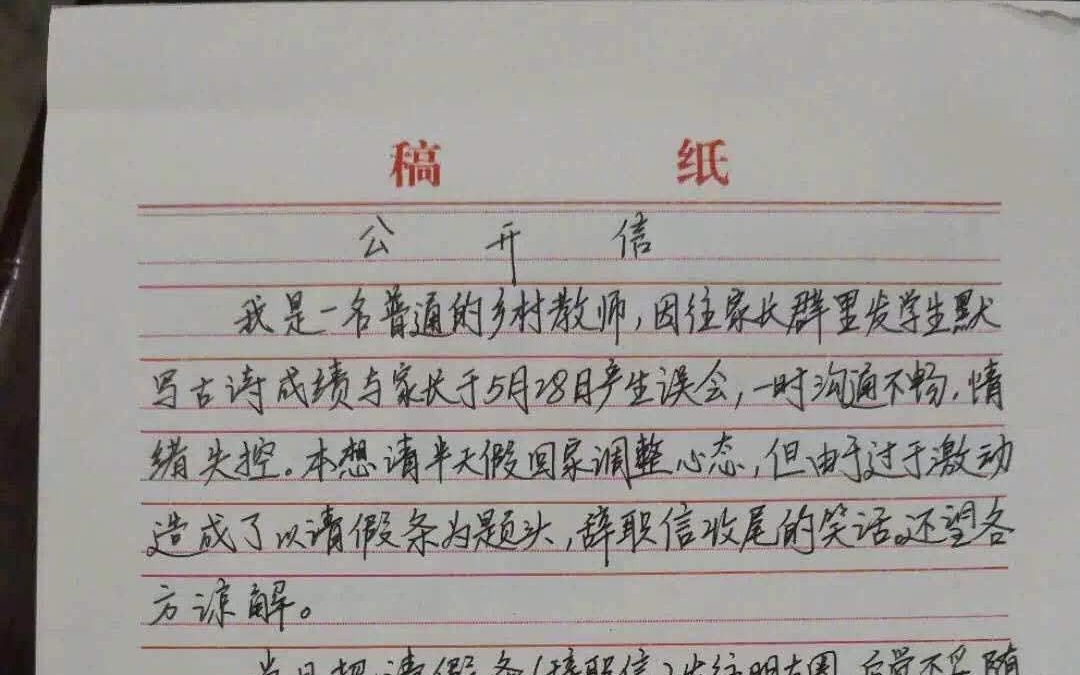 稿 纸
公 开 信
我是一名普通的乡村教师,因往家长群里发学生默
写古诗成绩与家长于5月28日产生误会,一时沟通不畅,情
绪失控。本想请半天假回家调整心态,但由于过于激动
造成了以请假条为题头,辞职信收尾的笑话。还望各
方谅解。
当日把请假条(辞职信)发往朋友圈,